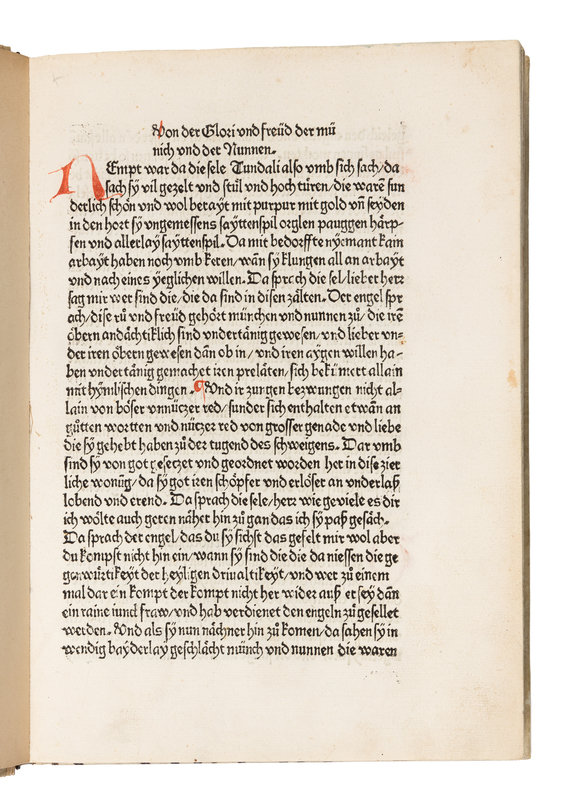 Von der Glori vnd freüd der mü
nich vnd der Nunnen.
NEmpt war da die sele Tundali also vmb sich sach/da
sach sy̋ vil gezelt vnd stül vnd hoch türen/die warẽ sun
derlich schön vnd wol berayt mit purpur mit gold vñ seyden
in den hort sy̋ vngemessens sayttenspil orglen pauggen härp-
fen vnd allerlay sayttenspil. Da mit bedorffte nyemant kain
arbayt haben noch vmb keren/wãn sy̋ klungen all an arbayt
vnd nach eines yeglichen willen. Da sprach die sel/lieber herr
sag mir wer sind die/die da sind in disen zälten. Der engel spr
ach/dise rů vnd freud gehört münchen vnd nunnen zů/die irẽ
öbern andächtiklich sind vndertänig gewesen/vnd lieber vn-
der iren öbern gewesen dañ ob in/vnd iren aygen willen ha-
ben vndertänig gemachet iren prelãten/sich bekümert allain
mit hymlischen dingen. Vnd ir zungen bezwungen nicht al-
lain von böser vnnützer red/sunder sich enthalten etwan an
gůtten wortten vnd nützer red von grosser genade vnd liebe
die sy̋ gehebt haben zů der tugend des schweigens. Dar vmb
sind sy̋ von got gesetzet vnd geordnet worden her in dise zier
liche wonũg/da sy̋ got iren schöpfer vnd erlöser an vnderlaß
lobend vnd erend. Da sprach die sele/herr wie geviele es dir
ich wölte auch geren näher hin zů gan das ich sy̋ paß gesäch.
Da sprach der engel/das du sy̋ sichst das gefelt mir wol aber
du kompst nicht hin ein/wann sy̋ sind die die da niessen die ge
genwürtikeyt der heyligen driualtikeyt/vnd wer zů einem
mal dar ein kompt der kompt nicht her wider auß er sey dañ
ein raine iund fraw/vnd hab verdienet den engeln zů gesellet
werden. Vnd als sy̋ nun nächner hin zů komen/da sahen sy̋ in
wendig bayderlay geschlächt münch vnd nunnen die waren